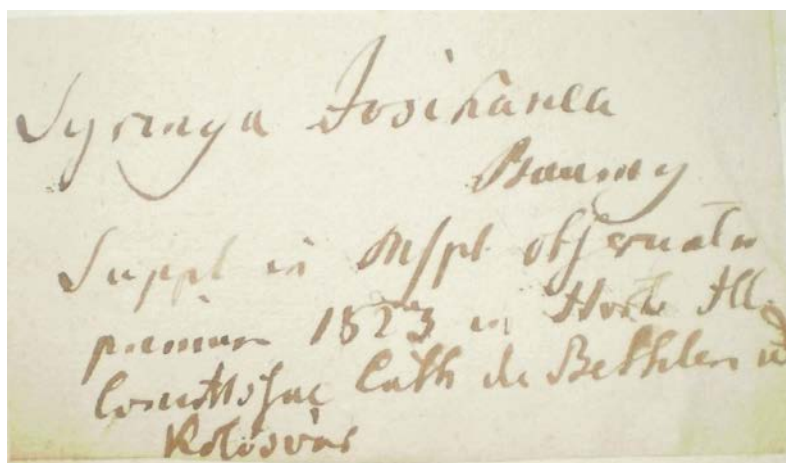 Syringa Josikaea
Baumg
Suppl in Mspt observata
primum 1823 in Horto Ill.
Comitissae Cath de Bethlen in
Kolosvár